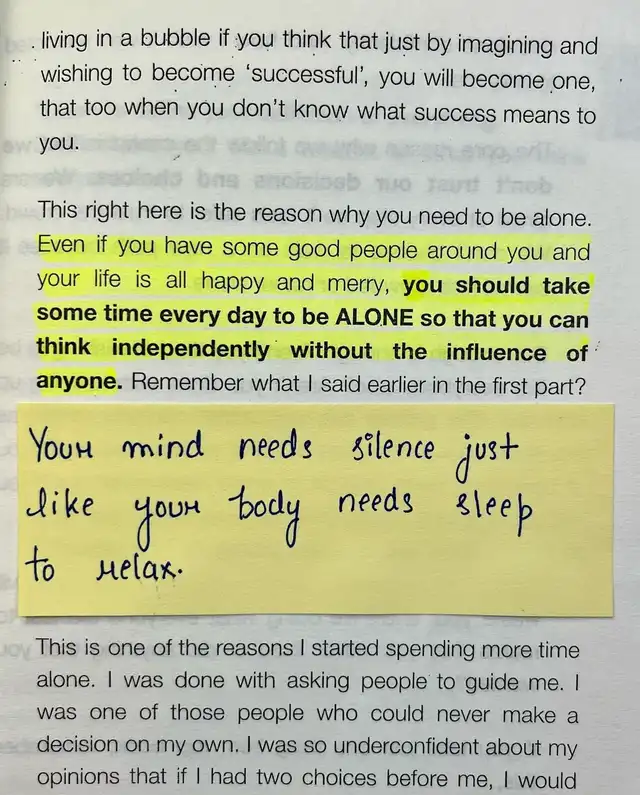 living in a bubble if you think that just by imagining and
wishing to become ‘successful’, you will become one,
that too when you don’t know what success means to
you.
This right here is the reason why you need to be alone.
Even if you have some good people around you and
your life is all happy and merry, you should take
some time every day to be ALONE so that you can
think independently without the influence of
anyone. Remember what I said earlier in the first part?
Your mind needs silence just
like your body needs sleep
to relax.
This is one of the reasons I started spending more time
alone. I was done with asking people to guide me. I
was one of those people who could never make a
decision on my own. I was so underconfident about my
opinions that if I had two choices before me, I would